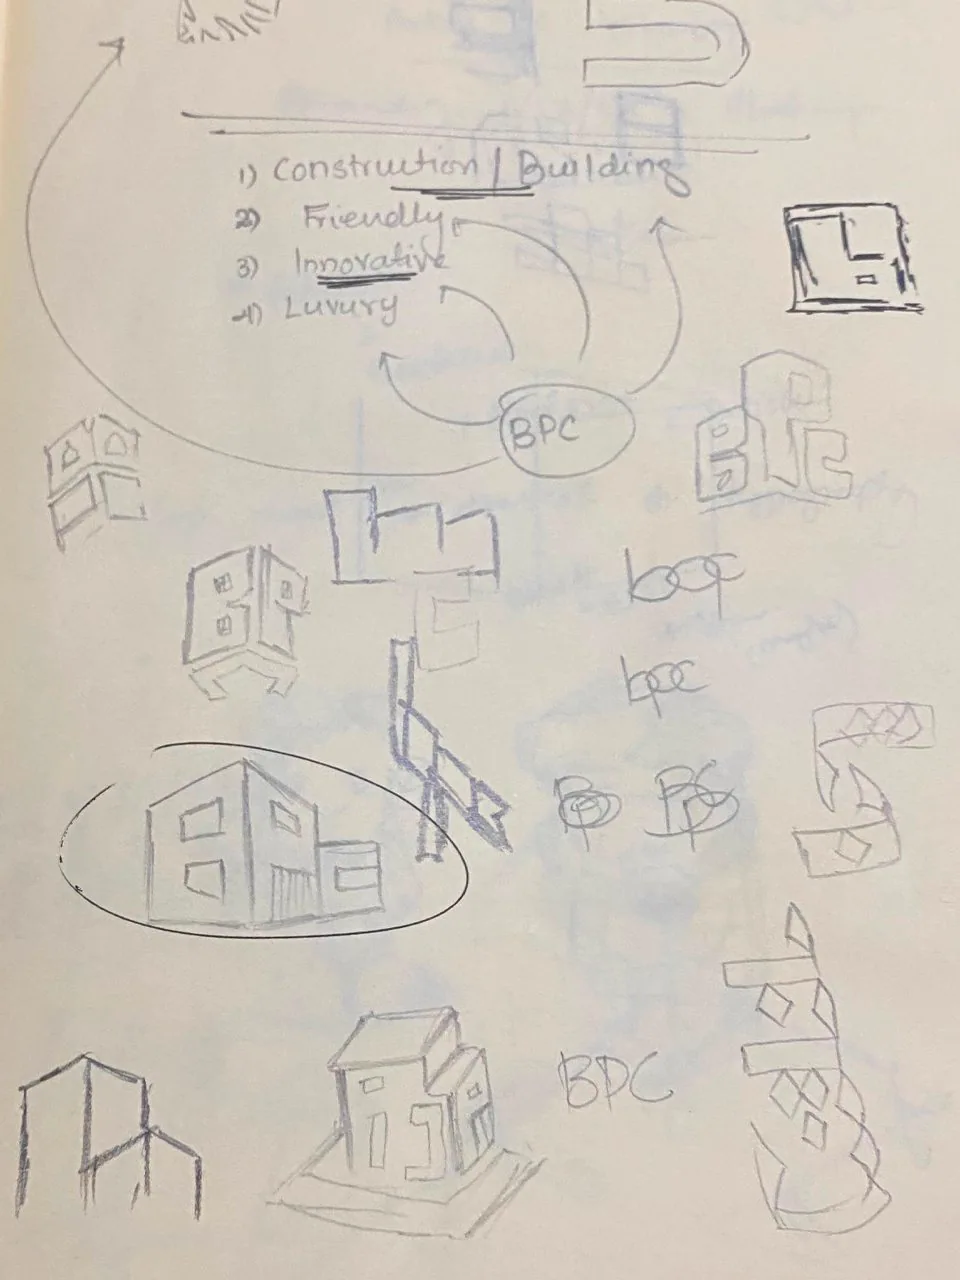 1) Construction / Building
2) Friendly
3) Innovative
4) Luvury
BPC
BPC
BP
bpc
bpc
BPC
BPC